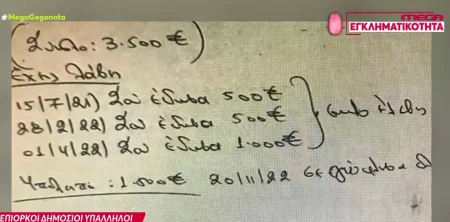 #MegaGegonota
MEGA
ΕΓΚΛΗΜΑΤΙΚΟΤΗΤΑ
(Σύνολο: 3.500€)
Έχεις λάβη
15/7/21) Σου έδωσα 500€
28/2/22) Σου έδωσα 500€
01/4/22) Σου έδωσα 1.000€
Υπόλοιπο: 1.500€ 20/11/22 σε
ΕΠΙΟΡΚΟΙ ΔΗΜΟΣΙΟΙ ΥΠΑΛΛΗΛΟΙ